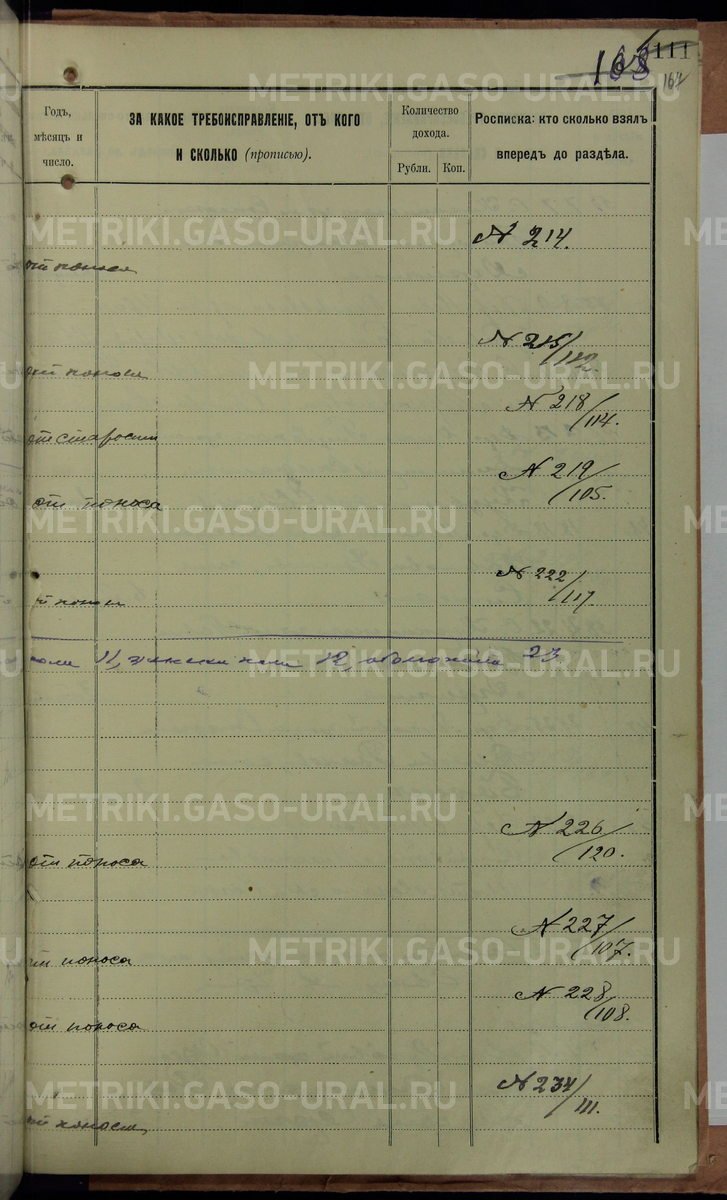 111
168
167
Годъ, мѣсяцъ и число.
ЗА КАКОЕ ТРЕБОИСПРАВЛЕНІЕ, ОТЪ КОГО И СКОЛЬКО (прописью).
Количество дохода.
Рубли. Коп.
Росписка: кто сколько взялъ впередъ до раздѣла.
METRIKI.GASO-URAL.RU
№ 214.
от поноса
№ 215/112.
от поноса
№ 218/114.
от старости
№ 219/105.
от поноса
№ 222/117.
от поноса
11, 12, 23
№ 226/120.
от поноса
№ 227/107.
от поноса
№ 228/108.
от поноса
№ 234/111.